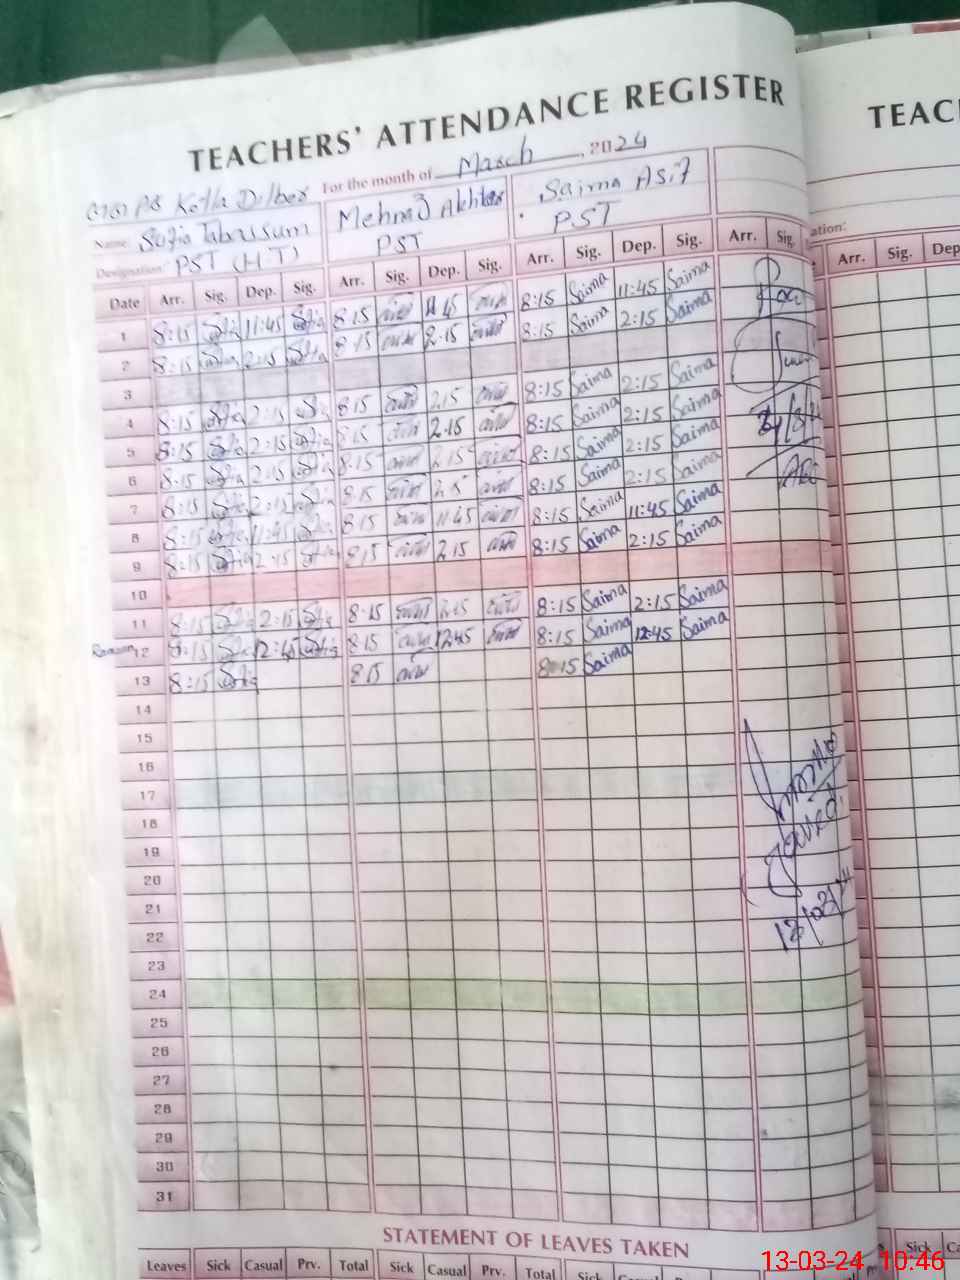 TEACHERS' ATTENDANCE REGISTER
TEAC
For the month of March, 2024
GGPS Kotla Dilber
Name: Sufia Tabassum Mehnaz Akhtar Saima Asif
Designation: PST (HT) PST PST
Date Arr. Sig. Dep. Sig. Arr. Sig. Dep. Sig. Arr. Sig. Dep. Sig. Arr. Sig. Arr. Sig. Dep
1 8:15 Sufia 11:45 Sufia 8:15 11:45 8:15 Saima 11:45 Saima
2 8:15 Sufia 2:15 Sufia 8:15 2:15 8:15 Saima 2:15 Saima
3
4 8:15 Sufia 2:15 Sufia 8:15 2:15 8:15 Saima 2:15 Saima
5 8:15 Sufia 2:15 Sufia 8:15 2:15 8:15 Saima 2:15 Saima
6 8:15 Sufia 2:15 Sufia 8:15 2:15 8:15 Saima 2:15 Saima
7 8:15 Sufia 2:15 Sufia 8:15 2:15 8:15 Saima 2:15 Saima
8 8:15 Sufia 11:45 Sufia 8:15 11:45 8:15 Saima 11:45 Saima
9 8:15 Sufia 2:15 Sufia 8:15 2:15 8:15 Saima 2:15 Saima
10
11 8:15 Sufia 2:15 Sufia 8:15 2:15 8:15 Saima 2:15 Saima
12 8:15 Sufia 12:45 Sufia 8:15 12:45 8:15 Saima 12:45 Saima
13 8:15 Sufia 8:15 8:15 Saima
14
15
16
17
18
19
20
21
22
23
24
25
26
27
28
29
30
31
STATEMENT OF LEAVES TAKEN
Leaves Sick Casual Prv. Total Sick Casual Prv. Total Sick Casual Sick
13-03-24 10:46